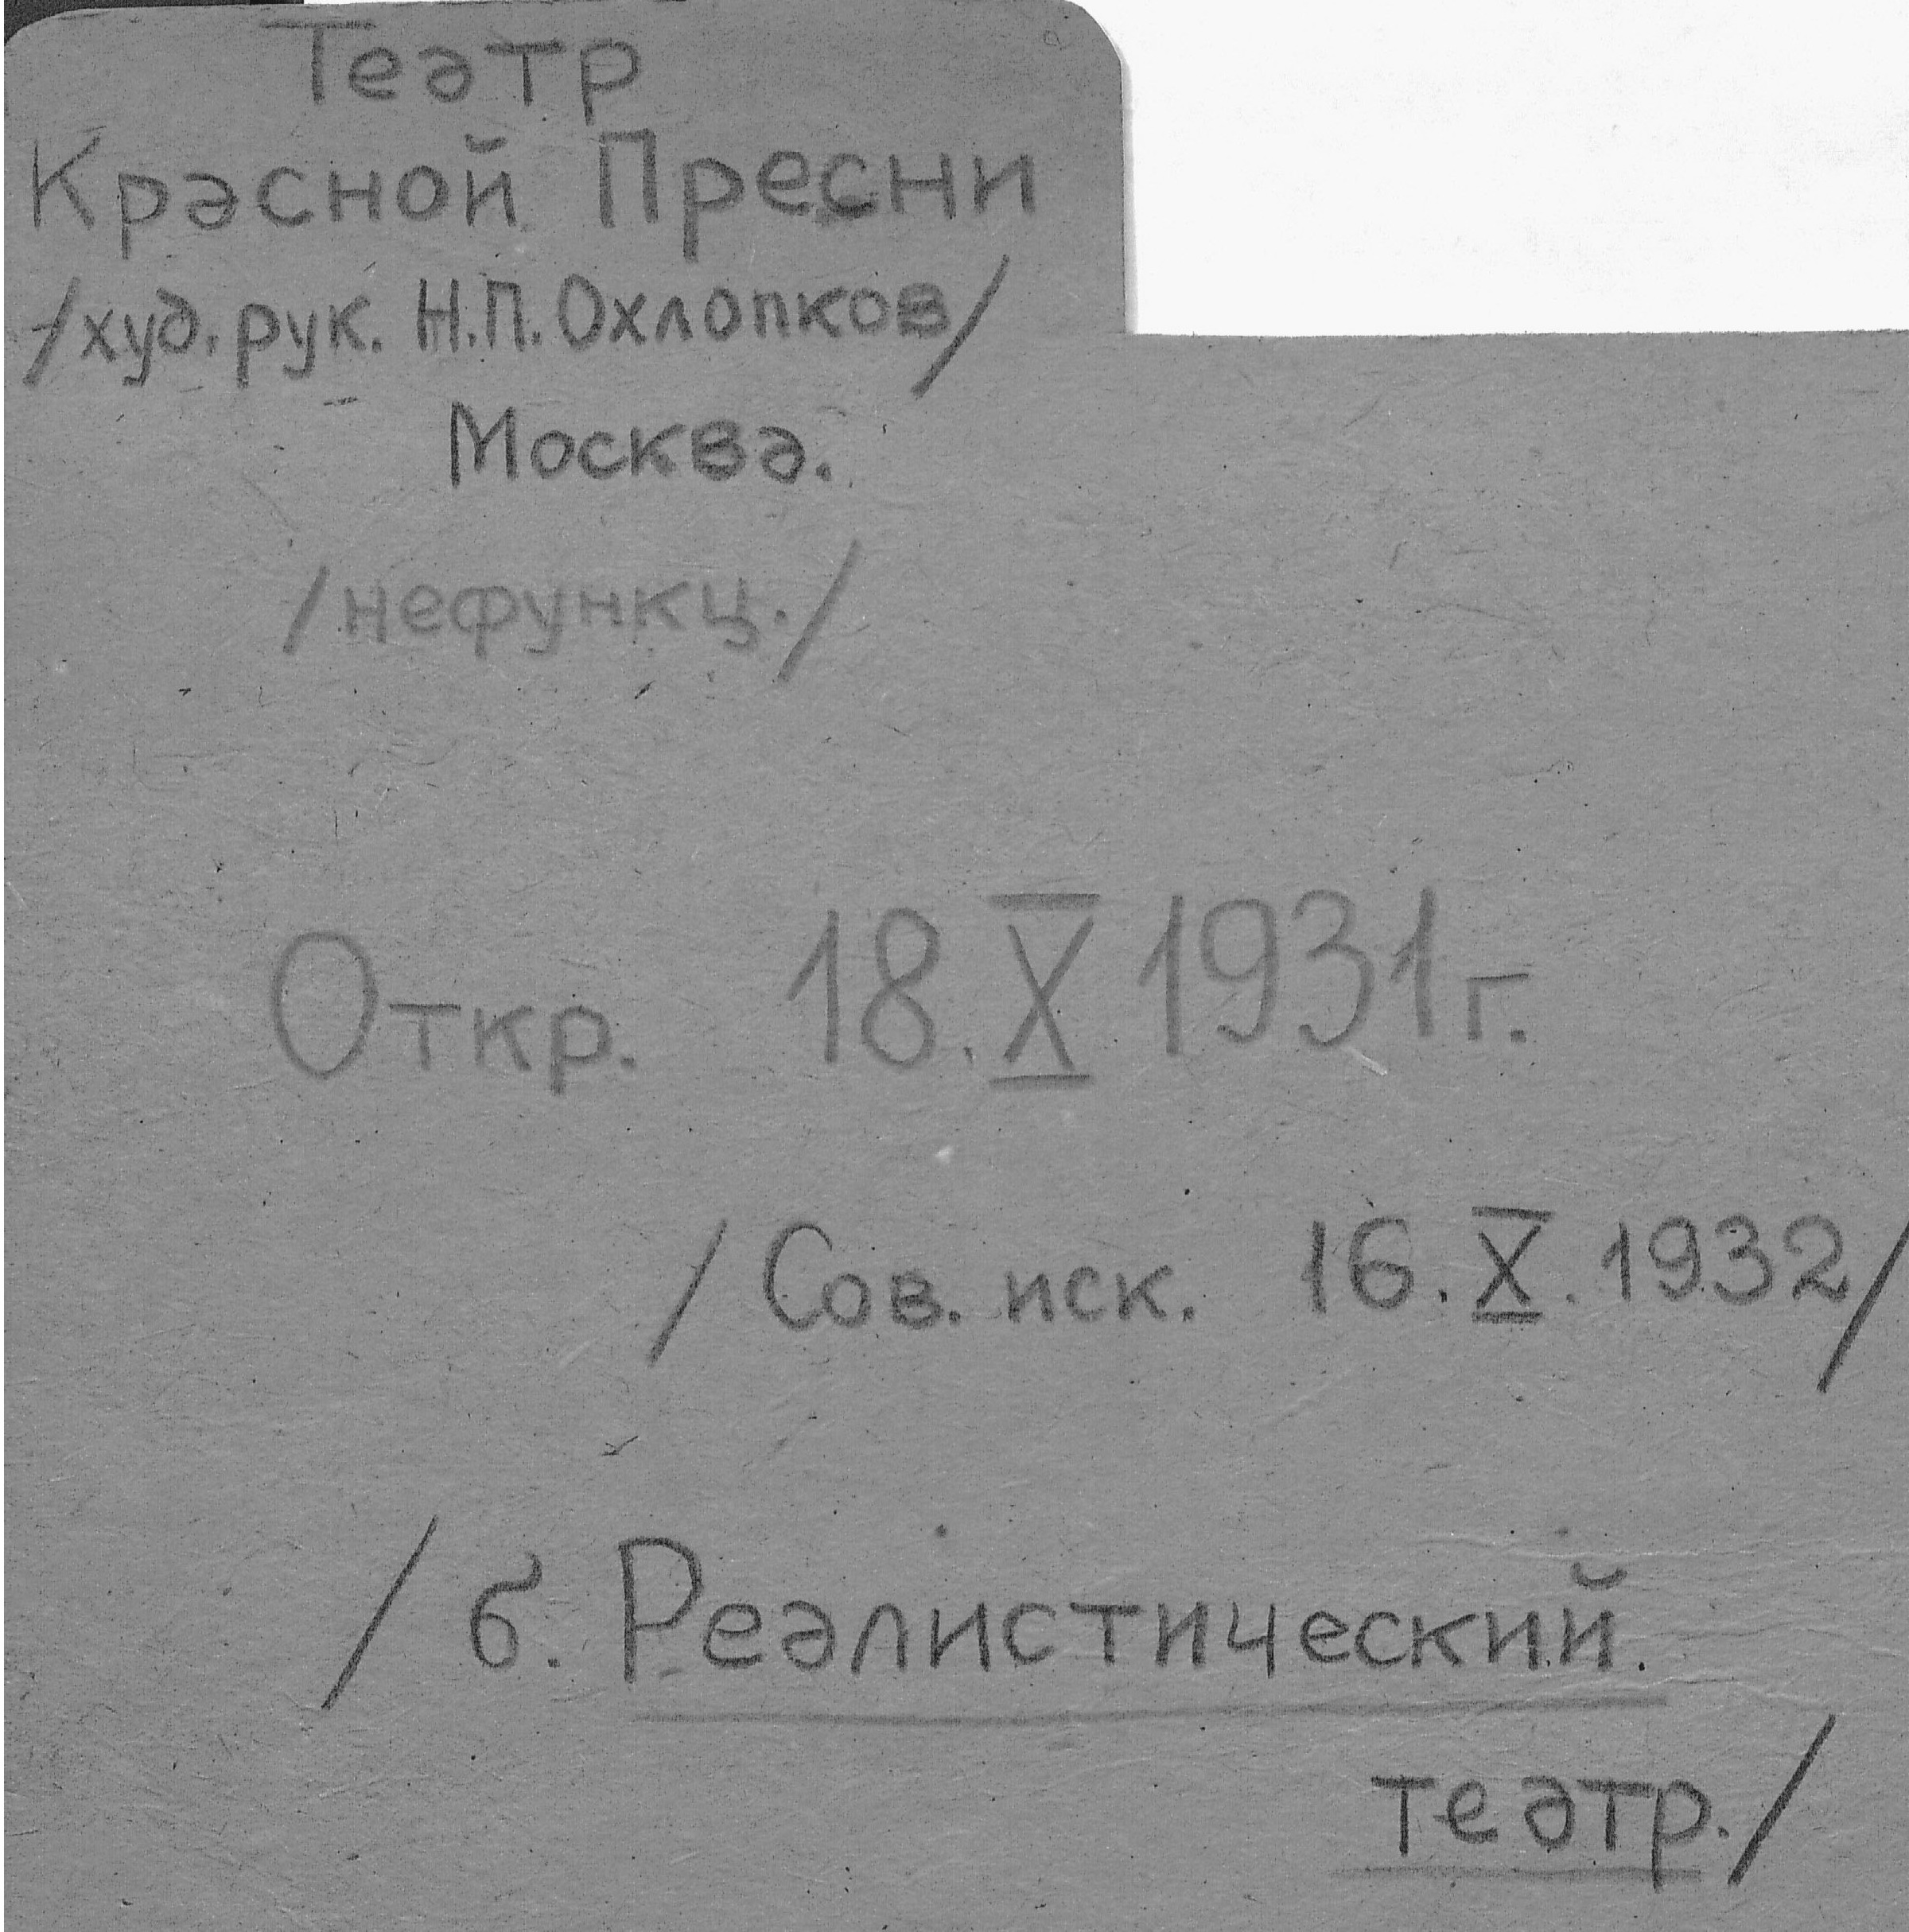 Театр
Красной Пресни
/худ. рук. Н.П. Охлопков/
Москва.
/нефункц./
Откр. 18.X 1931 г.
/Сов. иск. 16.X.1932/
/б. Реалистический
театр./